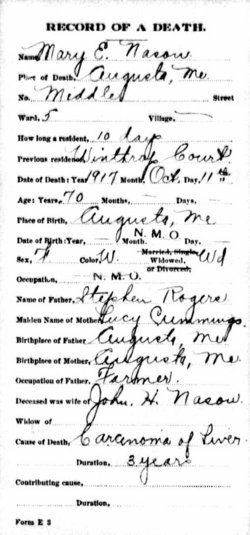 RECORD OF A DEATH.
Name, Mary E. Nason
Place of Death, Augusta, Me.
No. Middle Street
Ward, 5 Village,
How long a resident, 10 days
Previous residence, Winthrop Court
Date of Death: Year, 1917 Month, Oct, Day, 11th
Age: Years, 70 Months, Days,
Place of Birth, Augusta, Me
N. M. O.
Date of Birth: Year, Month. Day.
Sex, F Color, W. Married, Single, Widowed, or Divorced, Wd
Occupation, N. M. O.
Name of Father, Stephen Rogers
Maiden Name of Mother, Lucy Cummings
Birthplace of Father, Augusta, Me
Birthplace of Mother, Augusta, Me.
Occupation of Father, Farmer.
Deceased was wife of John. H. Nason
Widow of
Cause of Death, Carcinoma of Liver
Duration, 3 years
Contributing cause,
Duration,
Form E 3